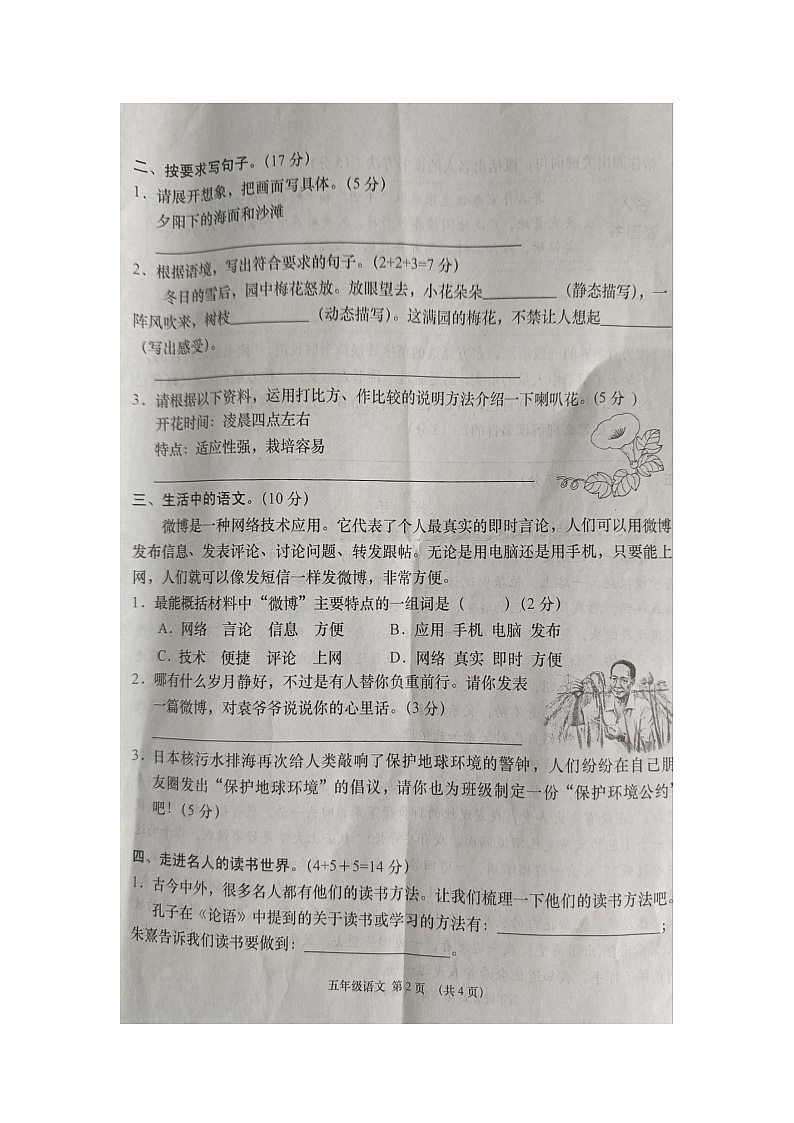 二、按要求写句子。(17 分)
1．请展开想象，把画面写具体。(5 分)
夕阳下的海面和沙滩
2．根据语境，写出符合要求的句子。(2+2+3=7 分)
冬日的雪后，园中梅花怒放。放眼望去，小花朵朵__________（静态描写），一
阵风吹来，树枝__________（动态描写）。这满园的梅花，不禁让人想起__________
（写出感受）。
3．请根据以下资料，运用打比方、作比较的说明方法介绍一下喇叭花。(5 分 )
开花时间：凌晨四点左右
特点：适应性强，栽培容易
三、生活中的语文。(10 分)
微博是一种网络技术应用。它代表了个人最真实的即时言论，人们可以用微博
发布信息、发表评论、讨论问题、转发跟帖。无论是用电脑还是用手机，只要能上
网，人们就可以像发短信一样发微博，非常方便。
1．最能概括材料中“微博”主要特点的一组词是（ ）(2 分)
A．网络 言论 信息 方便 B．应用 手机 电脑 发布
C．技术 便捷 评论 上网 D．网络 真实 即时 方便
2．哪有什么岁月静好，不过是有人替你负重前行。请你发表
一篇微博，对袁爷爷说说你的心里话。(3 分)
3．日本核污水排海再次给人类敲响了保护地球环境的警钟，人们纷纷在自己朋
友圈发出“保护地球环境”的倡议，请你也为班级制定一份“保护环境公约”
吧！(5 分)
四、走进名人的读书世界。(4+5＋5=14 分)
1．古今中外，很多名人都有他们的读书方法。让我们梳理一下他们的读书方法吧。
孔子在《论语》中提到的关于读书或学习的方法有：____________________；
朱熹告诉我们读书要做到：____________________。
五年级语文 第 2 页 （共 4 页）